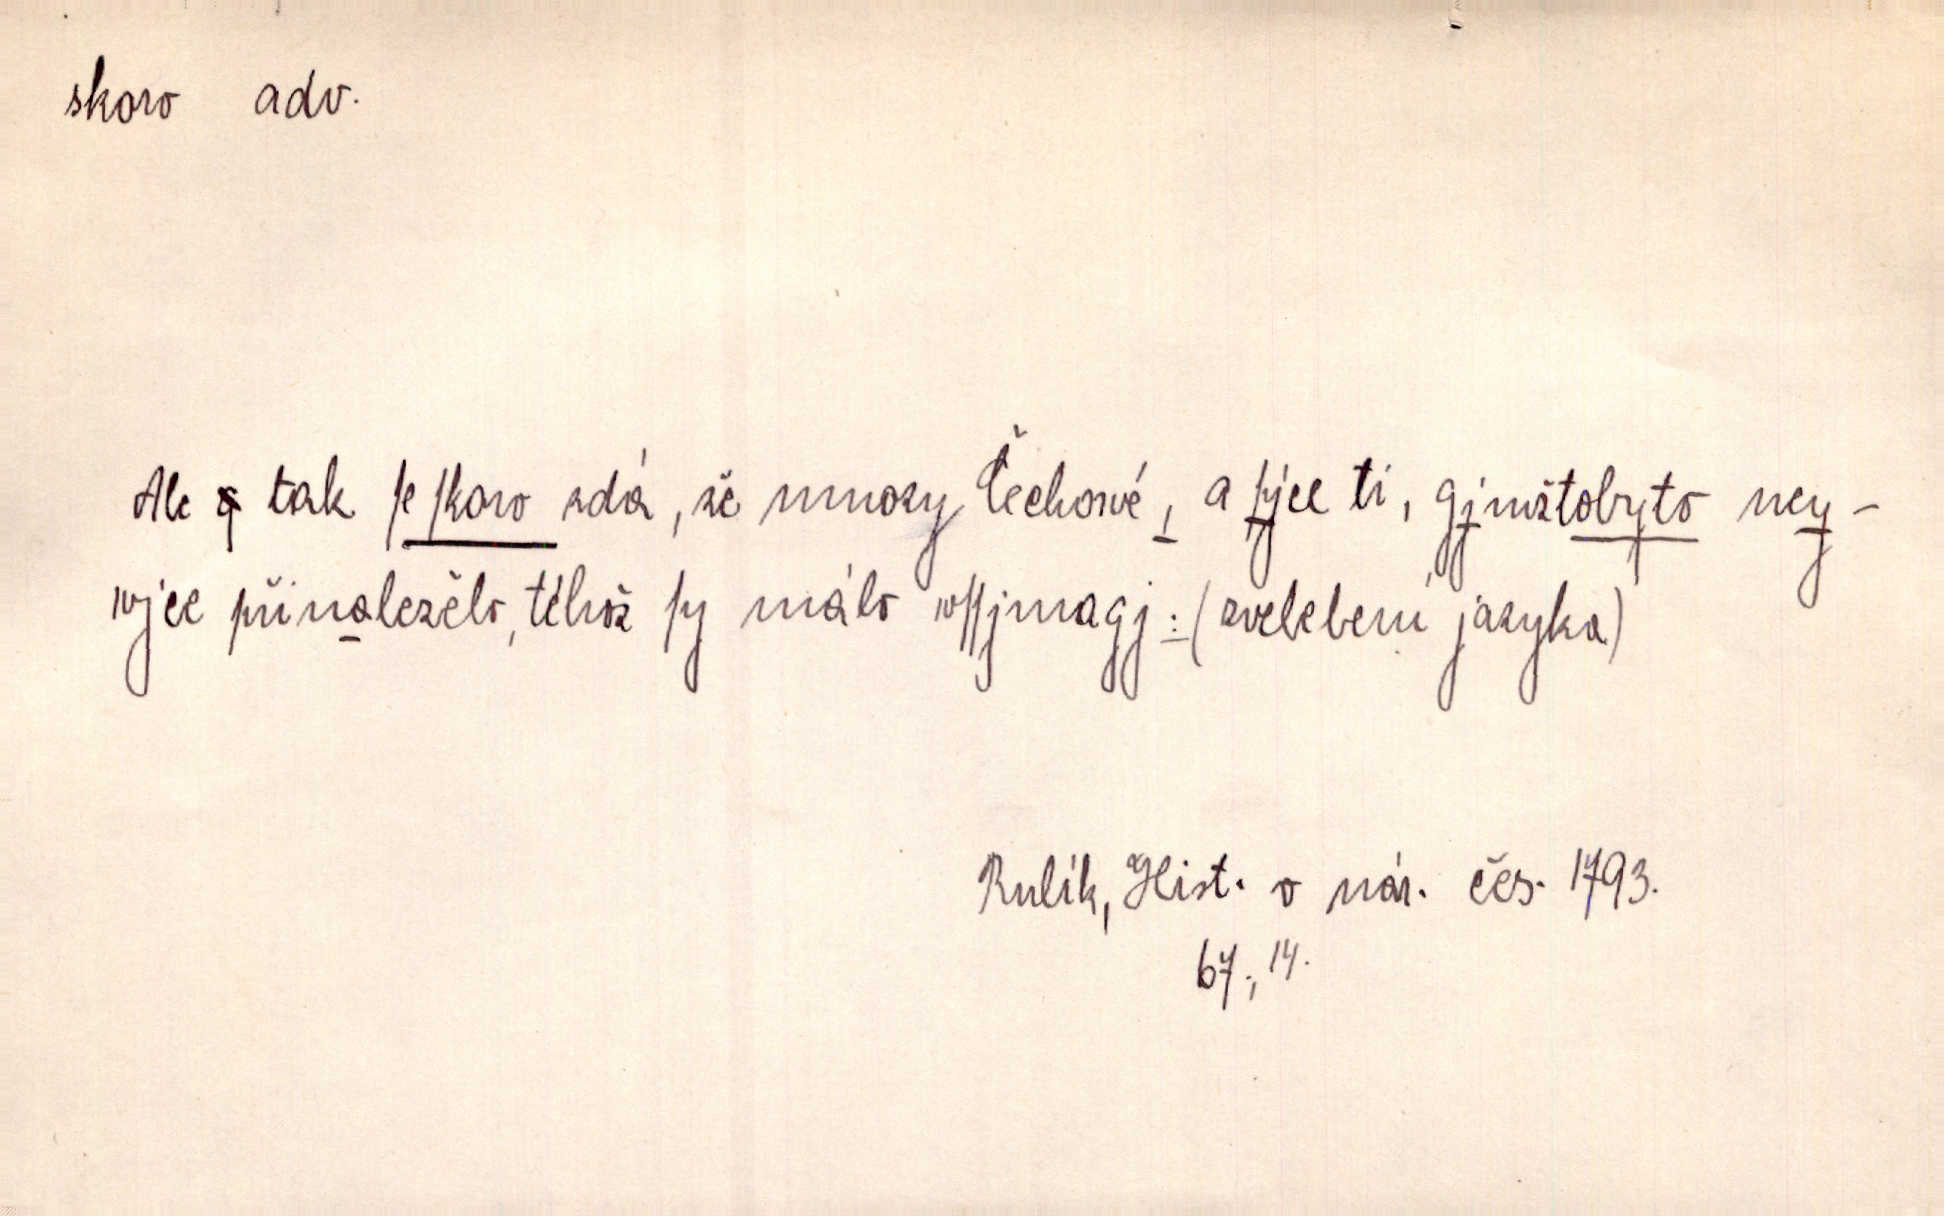 skoro adv.
Ale g tak ſe ſkoro zdá, že mnozy Čechowé, a ſýce ti, gjmžtobyto ney-
wjce přinaleželo, téhož ſy málo wſſjmagj: (zvelebení jazyka)
Rulík, Hist. o nár. čes. 1793.
67., 14.